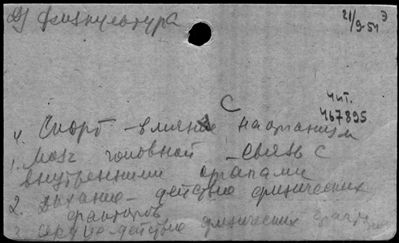 Физкультура
21/9-51 Э
С
Чит.
467895
4. Спорт - влияние на организм
1. Мозг головной - связь с
внутренними органами
2. Дыхание - действие физических
факторов
3. Сердце - действие физических факт